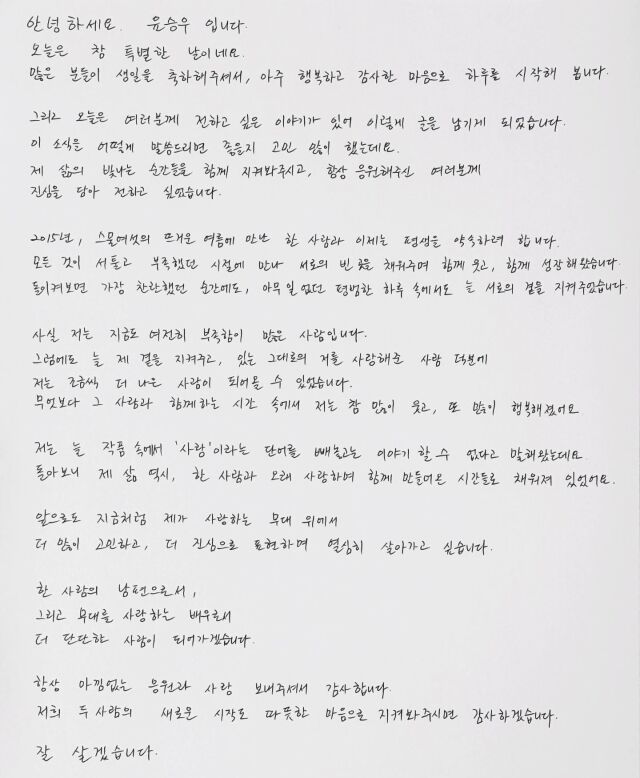 안녕하세요. 윤승우 입니다.
오늘은 참 특별한 날이네요.
많은 분들이 생일을 축하해주셔서, 아주 행복하고 감사한 마음으로 하루를 시작해 봅니다.
그리고 오늘은 여러분께 전하고 싶은 이야기가 있어 이렇게 글을 남기게 되었습니다.
이 소식을 어떻게 말씀드리면 좋을지 고민 많이 했는데요.
제 삶의 빛나는 순간들을 함께 지켜봐주시고, 항상 응원해주신 여러분께
진심을 담아 전하고 싶었습니다.
2015년, 스물여섯의 뜨거운 여름에 만난 한 사람과 이제는 평생을 약속하려 합니다.
모든 것이 서툴고 부족했던 시절에 만나 서로의 빈 곳을 채워주며 함께 웃고, 함께 성장해왔습니다.
돌이켜보면 가장 찬란했던 순간에도, 아무 일 없던 평범한 하루 속에서도 늘 서로의 곁을 지켜주었습니다.
사실 저는 지금도 여전히 부족함이 많은 사람입니다.
그럼에도 늘 제 곁을 지켜주고, 있는 그대로의 저를 사랑해준 사람 덕분에
저는 조금씩 더 나은 사람이 되어올 수 있었습니다.
무엇보다 그 사람과 함께하는 시간 속에서 저는 참 많이 웃고, 또 많이 행복해졌어요
저는 늘 작품 속에서 '사랑'이라는 단어를 빼놓고는 이야기 할 수 없다고 말해왔는데요.
돌아보니 제 삶 역시, 한 사람과 오래 사랑하며 함께 만들어온 시간들로 채워져 있었어요.
앞으로도 지금처럼 제가 사랑하는 무대 위에서
더 많이 고민하고, 더 진심으로 표현하며 열심히 살아가고 싶습니다.
한 사람의 남편으로서,
그리고 무대를 사랑하는 배우로서
더 단단한 사람이 되어가겠습니다.
항상 아낌없는 응원과 사랑 보내주셔서 감사합니다.
저희 두사람의 새로운 시작도 따뜻한 마음으로 지켜봐주시면 감사하겠습니다.
잘 살겠습니다.